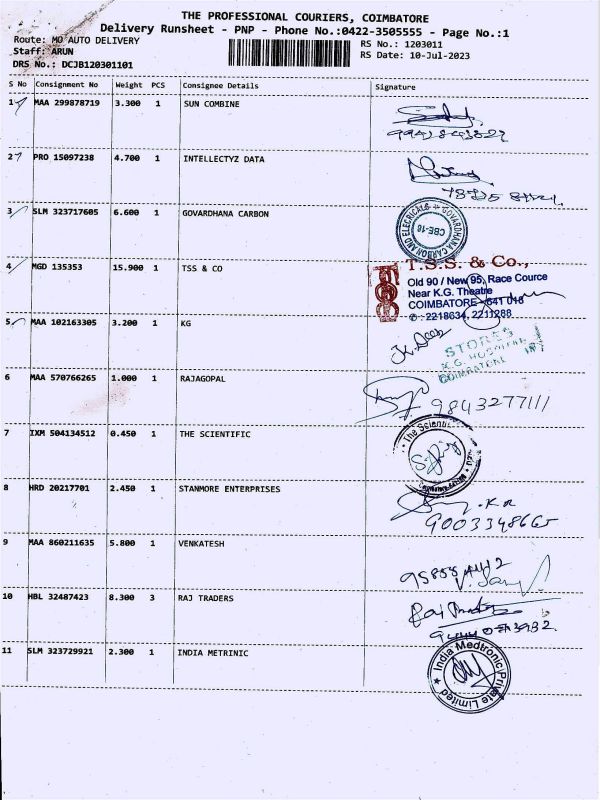 THE PROFESSIONAL COURIERS, COIMBATORE
Delivery Runsheet - PNP - Phone No.:0422-3505555 - Page No.:1
Route: MO AUTO DELIVERY
RS No.: 1203011
Staff: ARUN
RS Date: 10-Jul-2023
DRS No.: DCJB120301101
S No Consignment No Weight PCS Consignee Details Signature
1 MAA 299878719 3.300 1 SUN COMBINE
2 PRO 15097238 4.700 1 INTELLECTYZ DATA
3 SLM 323717605 6.600 1 GOVARDHANA CARBON
GOVARDHANA CARBON AND ELECRICALS
CBE-18
4 MGD 135353 15.900 1 TSS & CO
T.S.S. & Co.,
Old 90 / New 95, Race Cource
Near K.G. Theatre
COIMBATORE - 641 018
2218634, 2211288
5 MAA 102163305 3.200 1 KG
STORES
K.G. HOSPITAL
COIMBATORE
6 MAA 570766265 1.000 1 RAJAGOPAL
9843277111
7 IXM 504134512 0.450 1 THE SCIENTIFIC
The Scientific
8 HRD 20217701 2.450 1 STANMORE ENTERPRISES
9003348665
9 MAA 860211635 5.800 1 VENKATESH
10 HBL 32487423 8.300 3 RAJ TRADERS
11 SLM 323729921 2.300 1 INDIA METRINIC
India Medtronic Private Limited